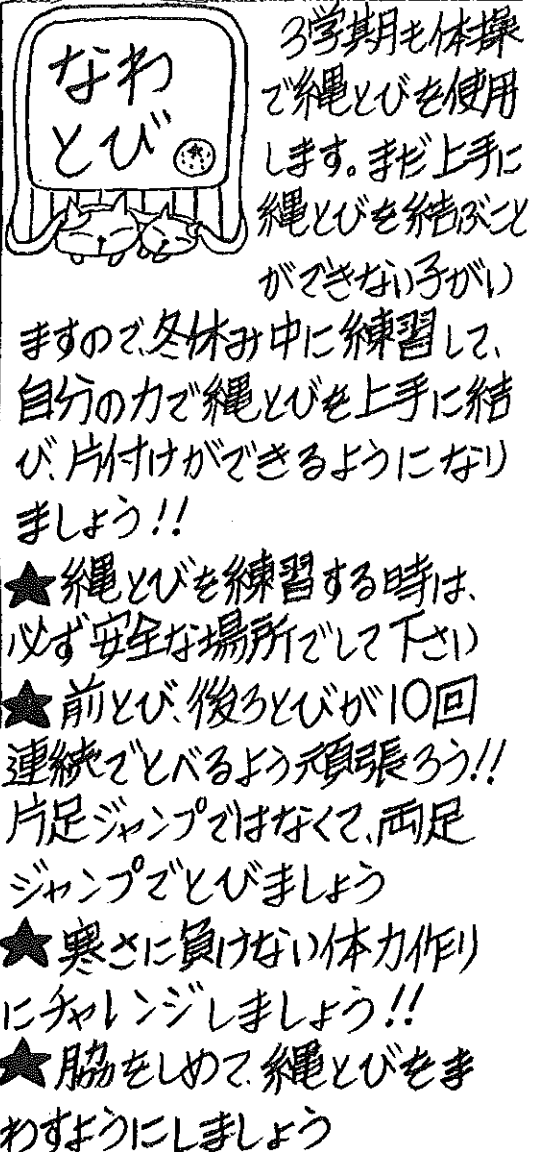 なわ
とび
3学期も体操
で縄とびを使用
します。まだ上手に
縄とびを結ぶこと
ができない子がい
ますので、冬休み中に練習して、
自分の力で縄とびを上手に結
び、片付けができるようになり
ましょう!!
★縄とびを練習する時は、
必ず安全な場所でして下さい
★前とび、後ろとびが10回
連続でとべるよう頑張ろう!!
片足ジャンプではなくて、両足
ジャンプでとびましょう
★寒さに負けない体力作り
にチャレンジしましょう!!
★脇をしめて、縄とびをま
わすようにしましょう